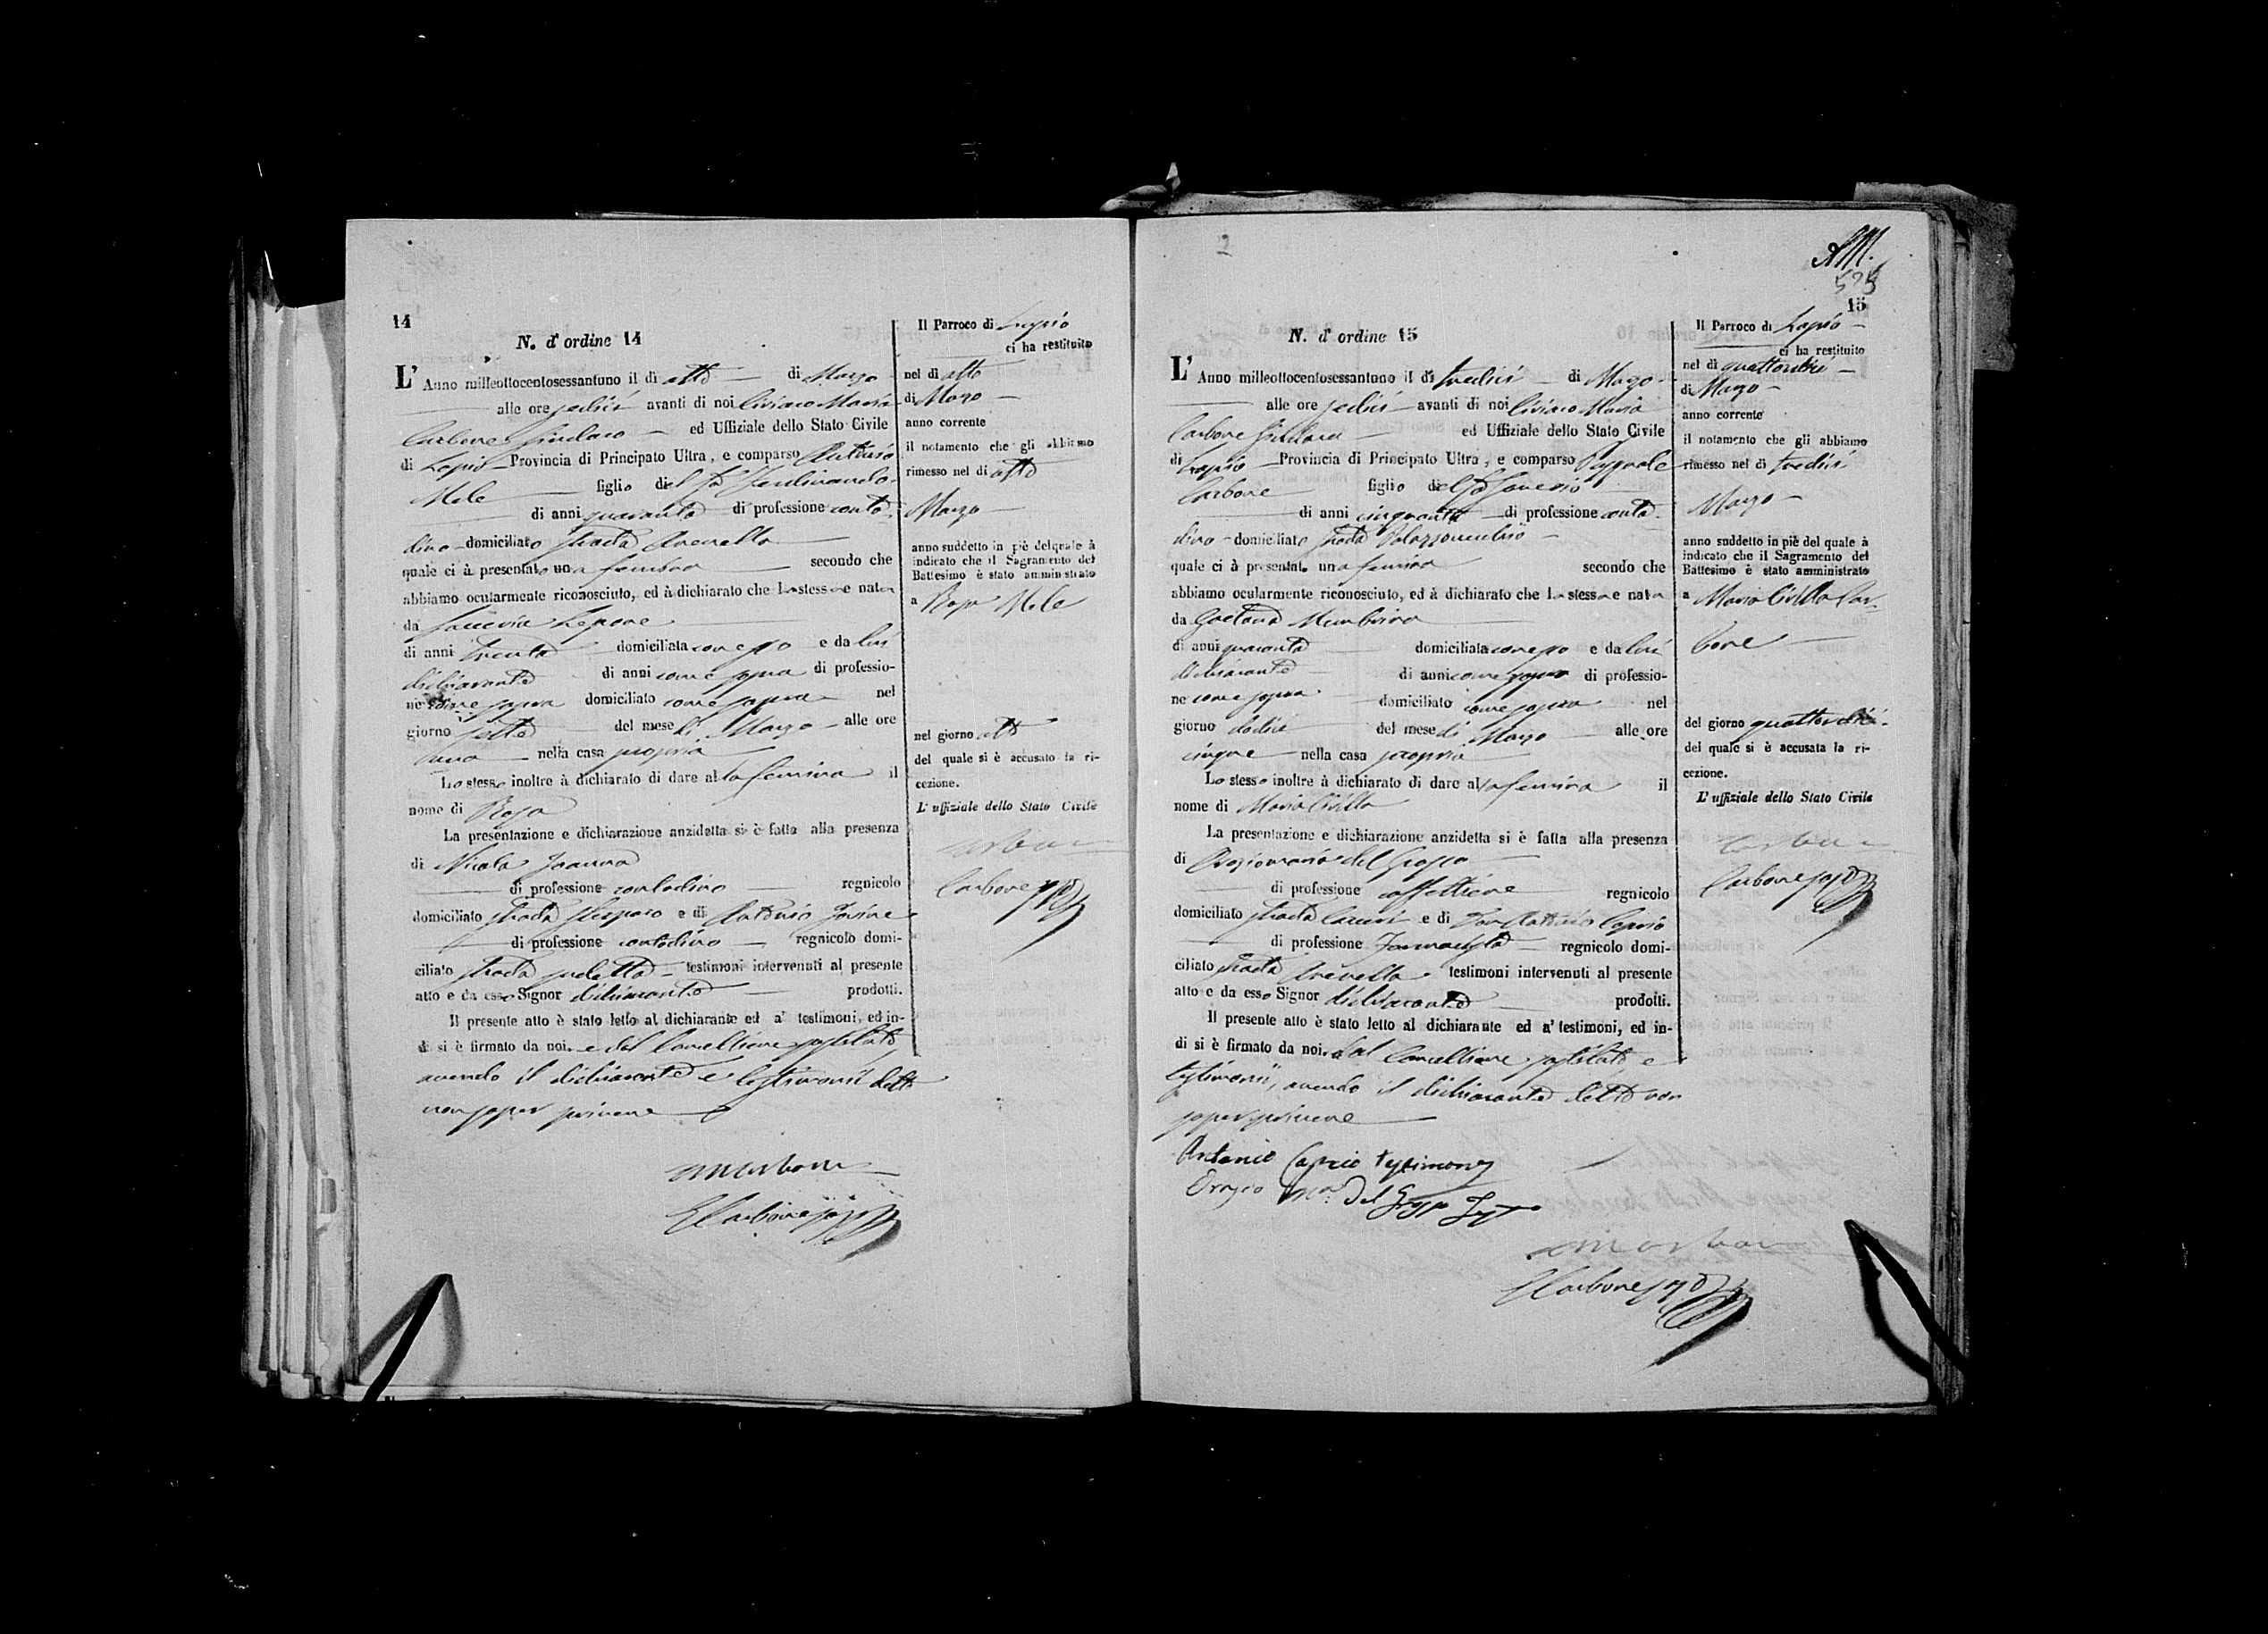 14
N. d' ordine 14
L' Anno milleottocentosessantuno il dì otto di Marzo
alle ore sedici avanti di noi Ciriaco Maria
Carbone Sindaco ed Uffiziale dello Stato Civile
di Lapio Provincia di Principato Ultra, e comparso Antonio
Mele figlio del fu Ferdinando
di anni quaranta di professione conta-
dino domiciliato strada
quale ci à presentato una femina secondo che
abbiamo ocularmente riconosciuto, ed à dichiarato che la stessa e nata
da Saveria Lepore
di anni trenta domiciliata con esso e da lui
dichiarante di anni come sopra di professio-
ne come sopra domiciliato come sopra nel
giorno sette del mese di Marzo alle ore
una nella casa propria
Lo stesso inoltre à dichiarato di dare alla femina il
nome di Rosa
La presentazione e dichiarazione anzidetta si è fatta alla presenza
di Nicola
di professione contadino regnicolo
domiciliato strada e di Antonio
di professione contadino regnicolo domi-
ciliato strada testimoni intervenuti al presente
atto e da esso Signor dichiarante prodotti.
Il presente atto è stato letto al dichiarante ed a' testimoni, ed in-
di si è firmato da noi. e dal Cancelliere sostituto
avendo il dichiarante e testimonii detto
non saper scrivere
Carbone
Il Parroco di Lapio
ci ha restituito
nel dì otto
di Marzo
anno corrente
il notamento che gli abbiamo
rimesso nel dì otto
Marzo
anno suddetto in piè del quale à
indicato che il Sagramento del
Battesimo è stato amministrato
a Rosa Mele
nel giorno otto
del quale si è accusato la ri-
cezione.
L' uffiziale dello Stato Civile
Carbone
15
N. d' ordine 15
L' Anno milleottocentosessantuno il dì tredici di Marzo
alle ore sedici avanti di noi Ciriaco Maria
Carbone Sindaco ed Uffiziale dello Stato Civile
di Lapio Provincia di Principato Ultra, e comparso Pasquale
Carbone figlio del fu Saverio
di anni cinquanta di professione conta-
dino domiciliato strada
quale ci à presentato una femina secondo che
abbiamo ocularmente riconosciuto, ed à dichiarato che la stessa e nata
da Gaetana
di anni quaranta domiciliata con esso e da lui
dichiarante di anni come sopra di professio-
ne come sopra domiciliato come sopra nel
giorno dodici del mese di Marzo alle ore
cinque nella casa propria
Lo stesso inoltre à dichiarato di dare alla femina il
nome di Maria Civilla
La presentazione e dichiarazione anzidetta si è fatta alla presenza
di Oraziomaria del Grosso
di professione caffettiere regnicolo
domiciliato strada e di Don Antonio Caprio
di professione Farmacista regnicolo domi-
ciliato strada testimoni intervenuti al presente
atto e da esso Signor dichiarante prodotti.
Il presente atto è stato letto al dichiarante ed a' testimoni, ed in-
di si è firmato da noi. dal Cancelliere sostituto, e
testimonii, avendo il dichiarante detto non
saper scrivere
Antonio Caprio testimone
Orazio Ma. Del Grosso
Carbone
Il Parroco di Lapio
ci ha restituito
nel dì quattordici
di Marzo
anno corrente
il notamento che gli abbiamo
rimesso nel dì tredici
Marzo
anno suddetto in piè del quale à
indicato che il Sagramento del
Battesimo è stato amministrato
a Maria Civilla Car-
bone
del giorno quattordici
del quale si è accusata la ri-
cezione.
L' uffiziale dello Stato Civile
Carbone